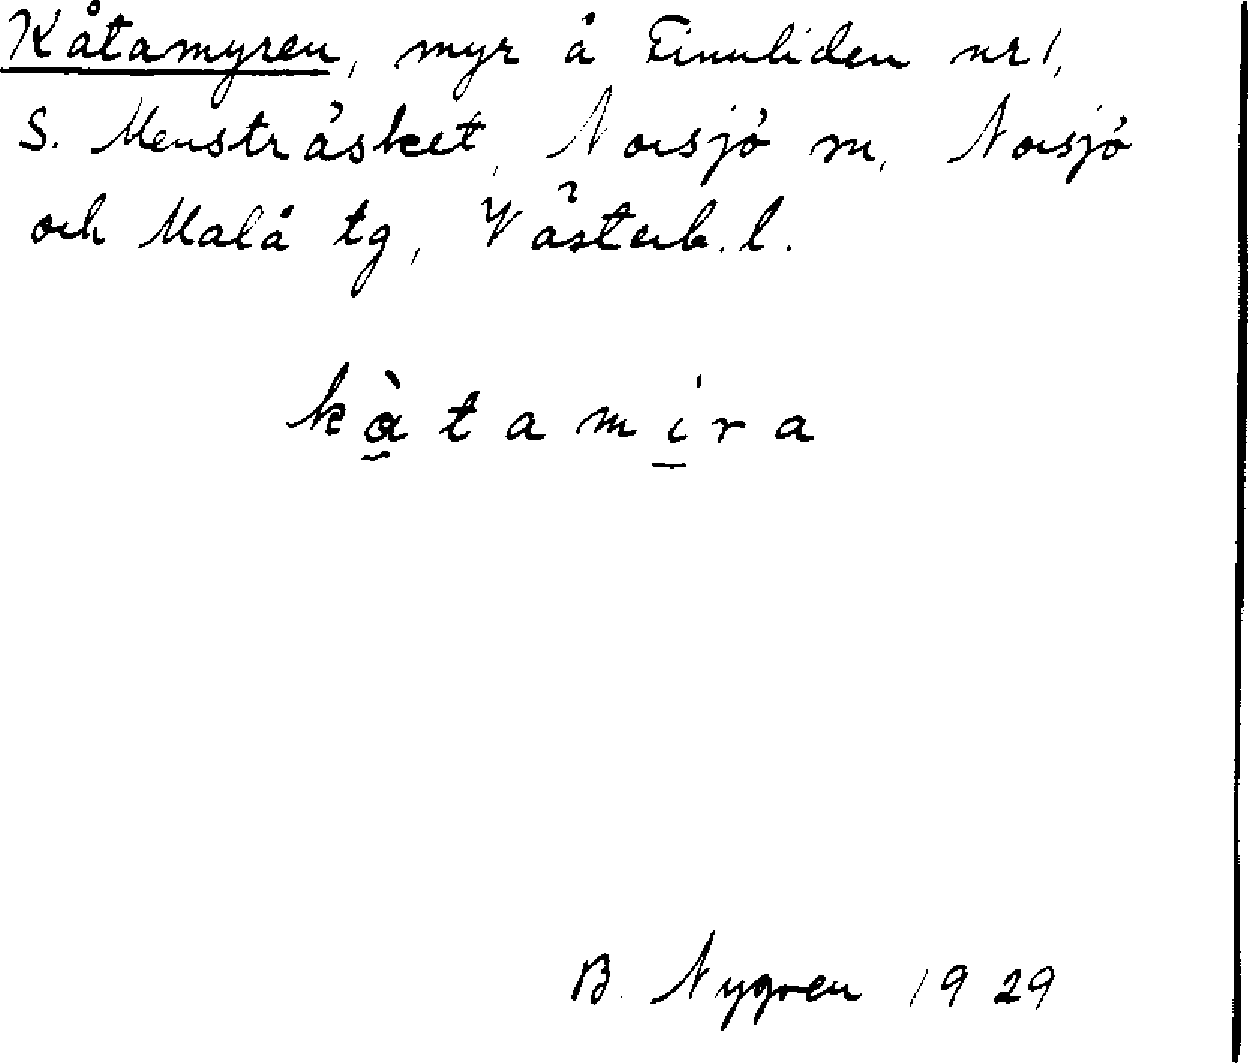 Kåtamyren, myr å Finnliden nr 1,
S. Mensträsket, Norsjö sn, Norsjö
och Malå tg, Västerb. l.
kàtamira
B. Nygren 1929